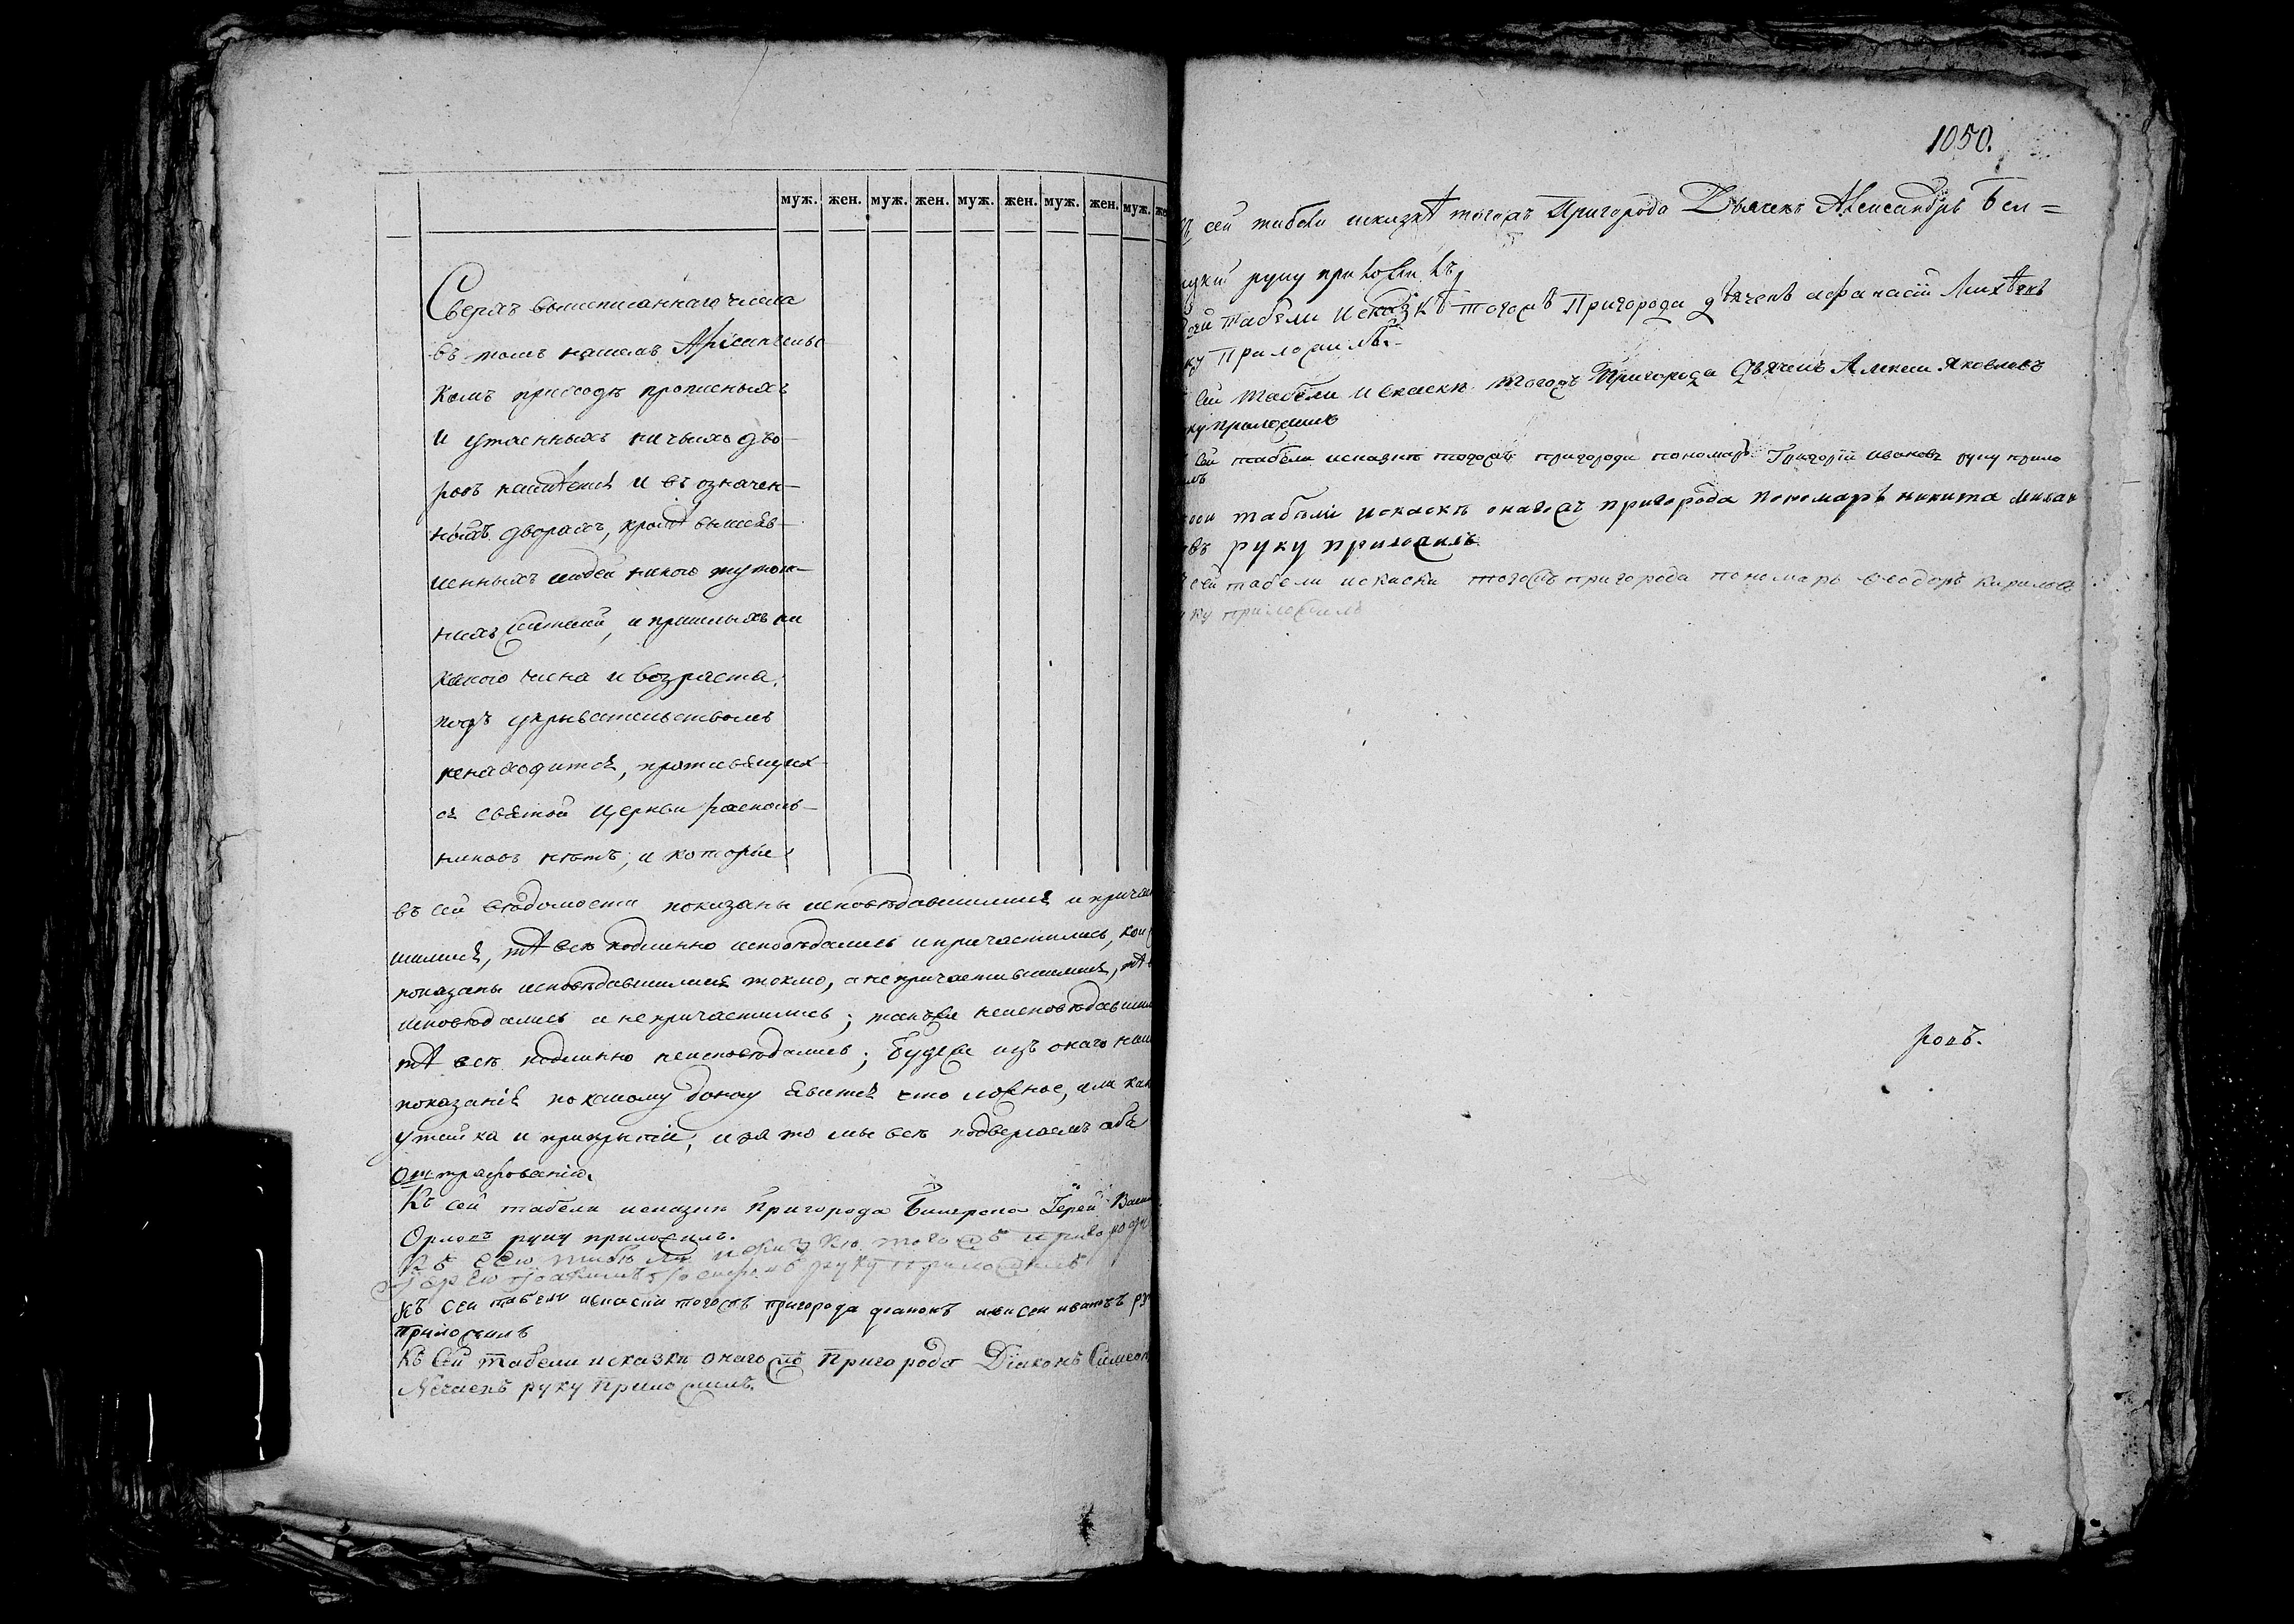 муж. жен. муж. жен. муж. жен. муж. жен. муж.
Сверхъ вышеписаннаго числа
въ томъ нашемъ Архангельс
комъ приходѣ прописныхъ
и утаенныхъ ничьихъ дво-
ровъ неимѣется и въ означен-
ныхъ дворахъ, кромѣ вышеяв-
ленныхъ людей никого тутош-
нихъ жителей, и пришлыхъ ни
какого чина и возраста,
подъ укрывательствомъ
ненаходится, противящихся
святой церкви расколь-
никовъ нѣтъ, и которые
въ сей вѣдомости показаны исповѣдавшимися и причас
шимися, тѣ всѣ подлинно исповѣдались и причастились, кои
показаны исповѣдавшимися токмо, а не причастившимися, тѣ
исповѣдались а не причастились; такъже неисповѣдавши
тѣ всѣ подлинно неисповѣдались; будеже изъ онаго наш
показанія по какому доносу явится что ложное, или как
утайка и прикрытіе, и за то мы всѣ подвергаемъ себя
отштрафованію.
Къ сей табели исказки Пригорода Билярска Іерей Васи
Орловъ руку приложилъ.
руку приложилъ
къ сей табели исказки тогожъ пригорода діаконъ алексеи ивановъ ру
приложилъ
Къ сей табели исказки онагожъ Пригорода Діаконъ Симеон
Нечаевъ руку приложилъ.
1050.
сей табели исказкѣ тогожъ Пригорода Дьячекъ Александръ Бел=
руку приложилъ
табели исказкѣ тогожъ Пригорода дьячекъ афанасій Михѣевъ
приложилъ.
сей табели искаски тогожъ Пригорода Дьячекъ Алексеи Яковлевъ
приложилъ
сей табели исказки тогожъ пригорода пономарь Григорій Ивановъ руку прило
табели искаски онагожъ пригорода пономарь никита Милан
овъ руку приложилъ
сей табели искаски тогожъ пригорода пономарь Феодоръ Кириловъ
приложилъ
ровъ.